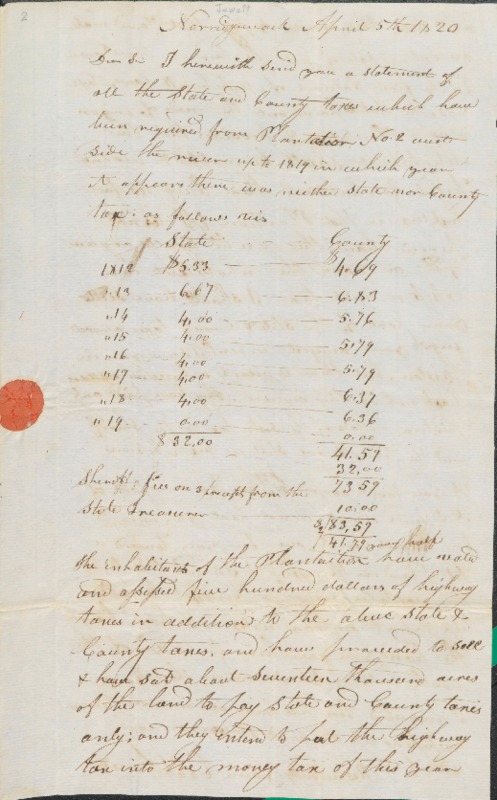 2
Jewett
Norridgewock April 5th 1820
Dear Sir I herewith send you a statement of
all the State and County taxes which have
been required from Plantation No. 2 west
side the river up to 1819 in which year
it appears there was neither State nor County
tax: as follows viz
State County
1812 $5.33 4.69
"13 6.67 6.83
"14 4,00 5.76
"15 4.00 5.79
"16 4.00 5.79
"17 4.00 6.37
"18 4,00 6.36
"19 0.00 0.00
$32,00 41.59
32,00
Sheriff fees on receipt from the 7359
State Treasurer 10.00
2/83,59
41.79 half
The inhabitants of the Plantation have made
and assessed five hundred dollars of highway
taxes in addition to the above State &
County taxes, and have proceeded to sell
& have sold about Seventeen thousand acres
of the land to pay State and County taxes
only; and they intend to put the highway
tax into the money tax of this year